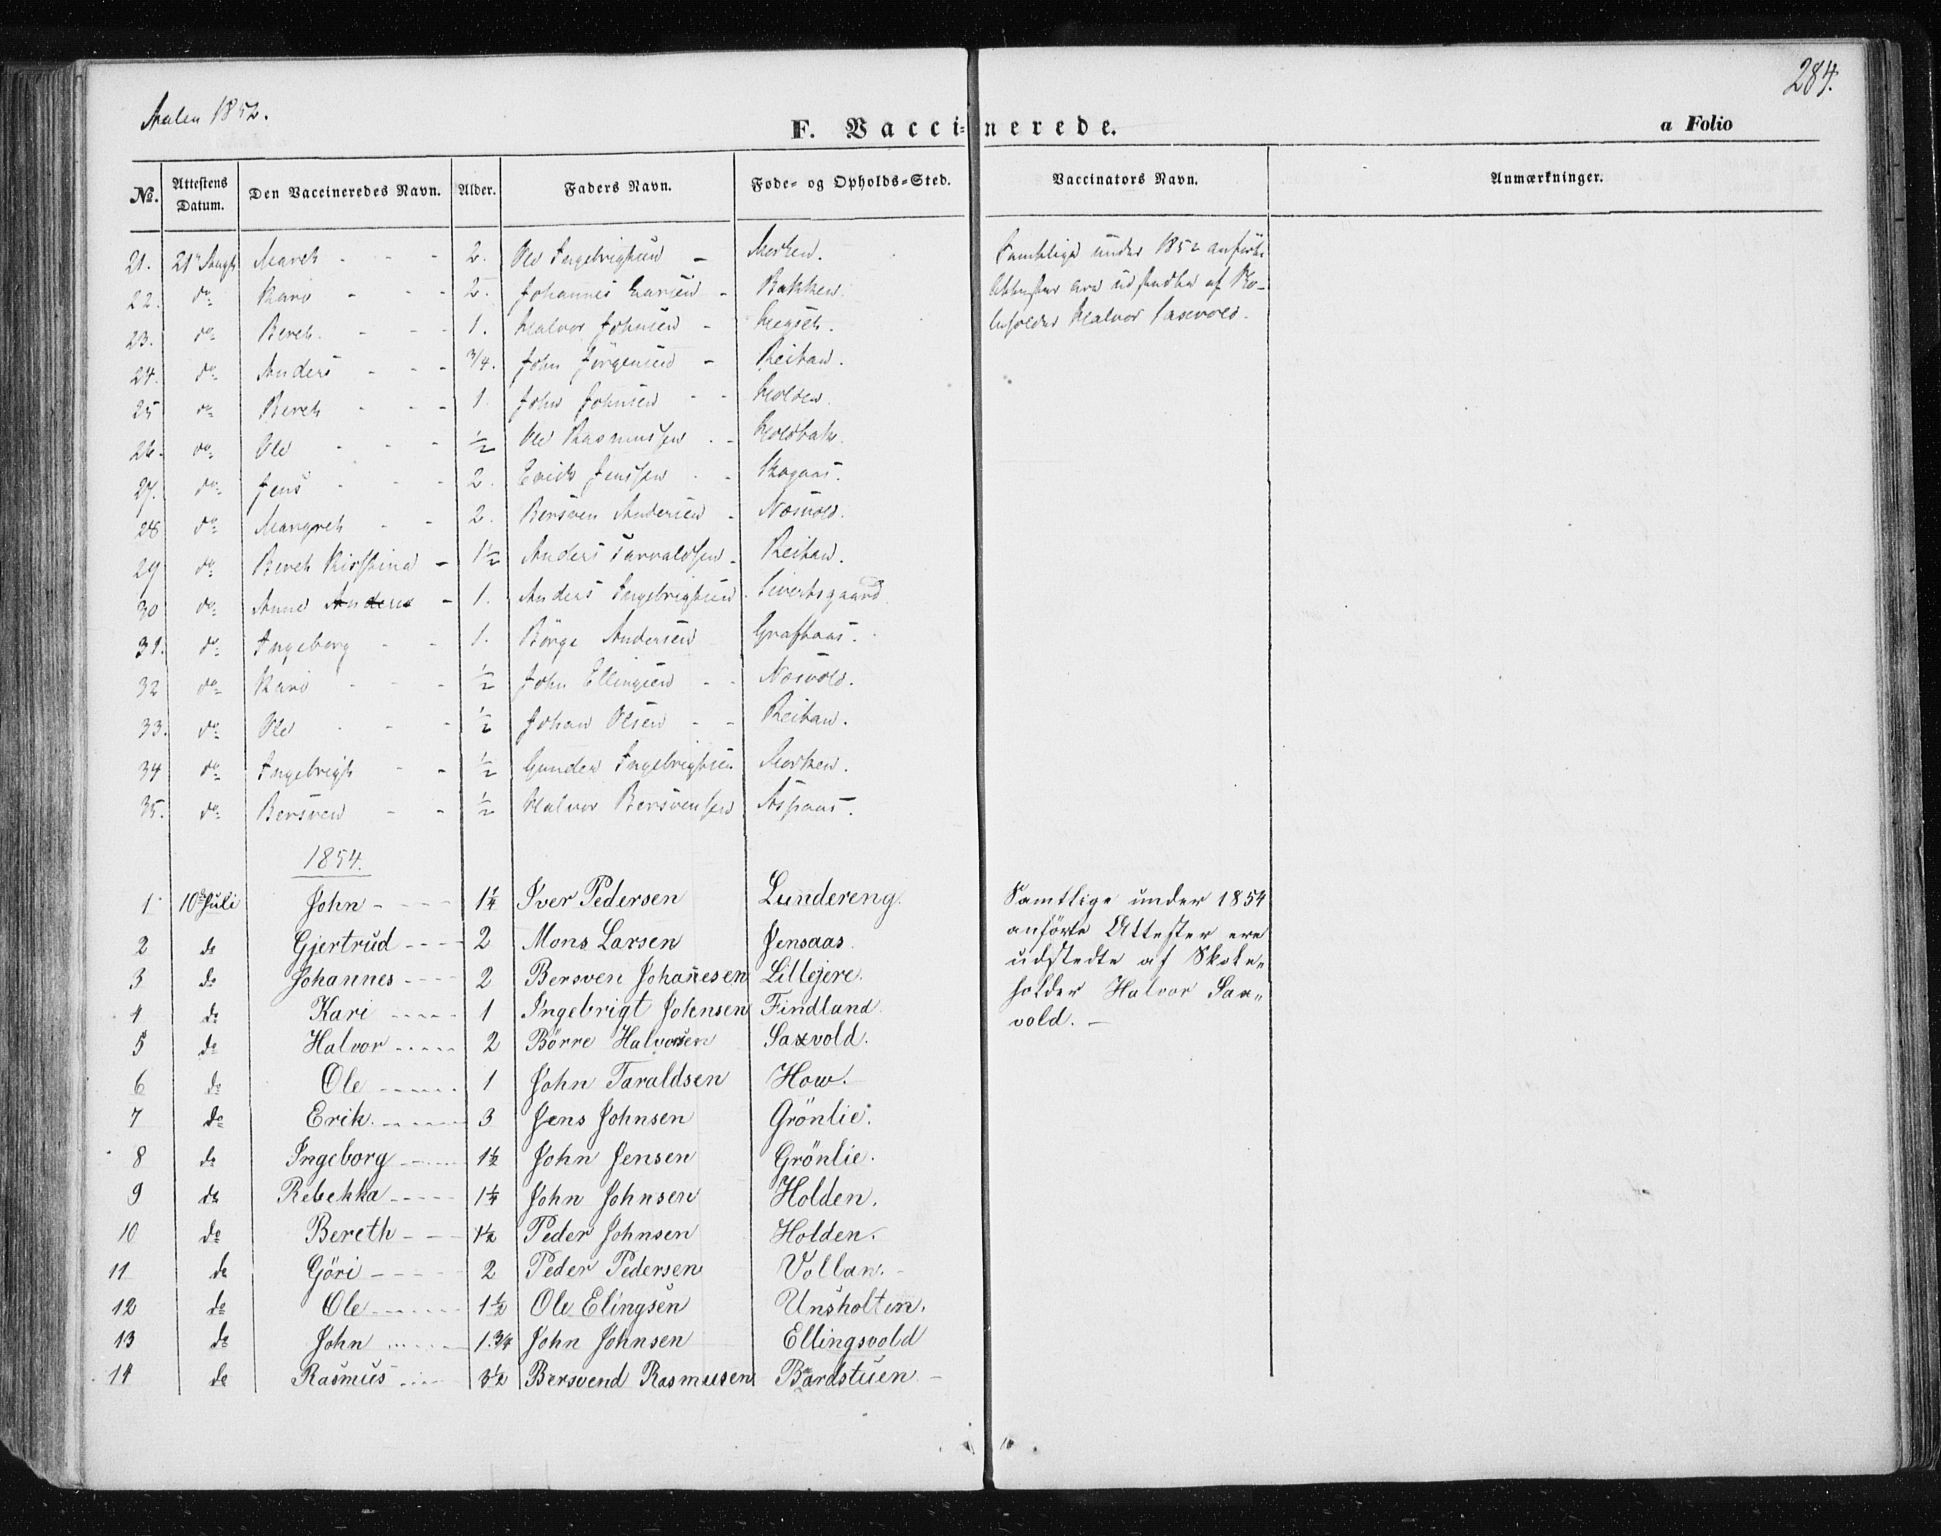 Aalen 1852.
284.
F. Vaccinerede.
a Folio
No. Attestens Datum. Den Vaccineredes Navn. Alder. Faders Navn. Føde- og Opholds-Sted. Vaccinators Navn. Anmærkninger.
21. 21de Augst Mareth - - - 2. Ole Ingebrigtsen - Morken. Samtlige under 1852 anførte
22. do Kari - - - 2. Johannes Larsen - Bakken. Attester ere udstedte af Ko-
23. do Bereth. - - - 1. Halvor Johnsen - Hegseth. holder Halvor Saxvold.
24. do Anders - - - 3/4. John Jörgensen - Reitan.
25 do Bereth - - - 1. John Johnsen - - Holden.
26. do Ole - - - 1/2 Ole Rasmussen - - Holdbak.
27. do Jens - - - 2. Erick Jenssen - - Skogaas.
28 do Mangreth - - 2. Bersven Andersen - Næsvold.
29 do Bereth Kirstina - 1 1/2 Anders Tarraldsen - Reitan.
30 do Anne Anders - 1. Anders Ingebrigtsen - Sivertsgaard
31. do Ingeborg - - 1. Börge Andersen Graftaas.
32 do Kari - - - 1/2 John Ellingsen - - Næsvold.
33. do Ole - - - 1/2 Johan Olsen - - Reitan.
34 do Ingebrigt - - 1/2 Gunder Ingebrigtsen Morken.
35. do Bersven - - 1/2 Halvor Bersvensen Aspaas.
1854.
1 10de Juli John - - - 1 1/4 Iver Pedersen Lundereng. Samtlige under 1854
2 do Gjertrud - - - 2 Mons Larsen Jensaas. anförte Attester ere
3 do Johannes - - - 2 Bersven Johañesen Lillejere. udstedte af Skole-
4 do Kari - - - 1 Ingebrigt Johnsen Findland. holder Halvor Sax-
5 do Halvor - - - 2 Börre Halvorsen Saxvold. vold. -
6 do Ole - - - 1 John Taraldsen How.
7 do Erik. - - - 3 Jens Johnsen Grönlie.
8 do Ingeborg - - - 1 1/2 John Jensen Grönlie.
9 do Rebekka - - - 1 1/4 John Johnsen Holden.
10 do Bereth - - - 1 1/2 Peder Johnsen Holden.
11 do Göri - - - 2 Peder Pedersen Vollan. -
12 do Ole - - - 1 1/2 Ole Elingsen Unsholten.
13 do John - - - 1.3/4 John Johnsen Ellingsvold
14 do Rasmus - - - 3 1/2 Bersvend Rasmusen Bardstuen -